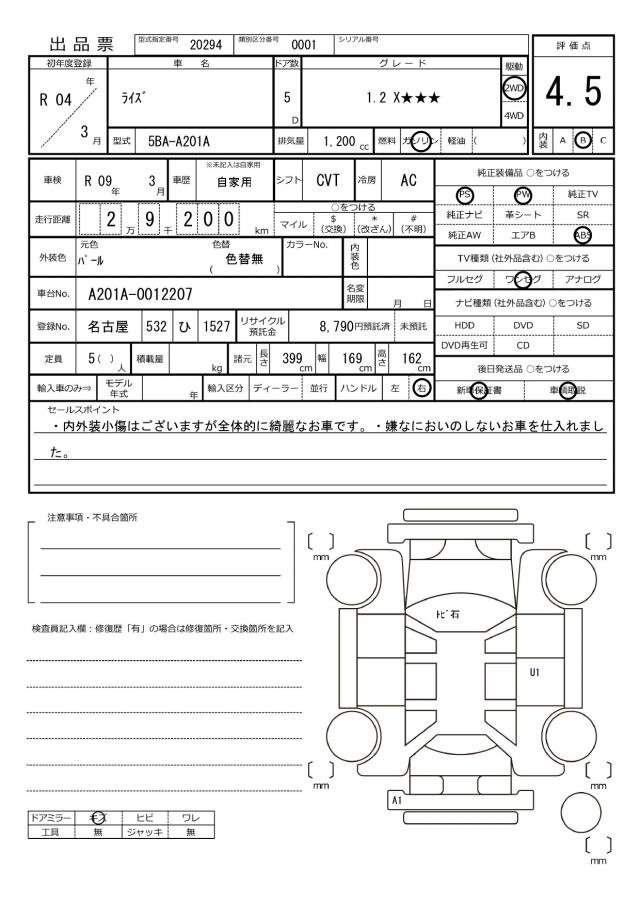 出品票
型式指定番号 20294 類別区分番号 0001 シリアル番号
初年度登録 車 名 ドア数 グレード 駆動 評価点
R 04 年 3 月 ﾗｲｽﾞ 5 D 1.2 X★★★ 2WD 4WD 4.5
型式 5BA-A201A 排気量 1,200 cc 燃料 ガソリン 軽油 ( ) 内装 A B C
車検 R 09 年 3 月 車歴 ※未記入は自家用 自家用 シフト CVT 冷房 AC
走行距離 2 万 9 千 2 0 0 km ○をつける マイル $ (交換) * (改ざん) # (不明)
外装色 元色 ﾊﾟｰﾙ 色替 ( 色替無 ) カラーNo. 内装色
車台No. A201A-0012207 名変期限 月 日
登録No. 名古屋 532 ひ 1527 リサイクル預託金 8,790円預託済 未預託
定員 5( ) 人 積載量 kg 諸元 長さ 399 cm 幅 169 cm 高さ 162 cm
輸入車のみ⇒ モデル年式 年 輸入区分 ディーラー 並行 ハンドル 左 右
純正装備品 ○をつける
PS PW 純正TV
純正ナビ 革シート SR
純正AW エアB ABS
TV種類 (社外品含む) ○をつける
フルセグ ワンセグ アナログ
ナビ種類 (社外品含む) ○をつける
HDD DVD SD
DVD再生可 CD
後日発送品 ○をつける
新車保証書 車輌取説
セールスポイント
・内外装小傷はございますが全体的に綺麗なお車です。・嫌なにおいのしないお車を仕入れまし
た。
注意事項・不具合箇所
検査員記入欄：修復歴「有」の場合は修復箇所・交換箇所を記入
[ ] mm [ ] mm
ﾄﾋﾞ石
U1
[ ] mm [ ] mm
A1
[ ] mm
ドアミラー キズ ヒビ ワレ
工具 無 ジャッキ 無